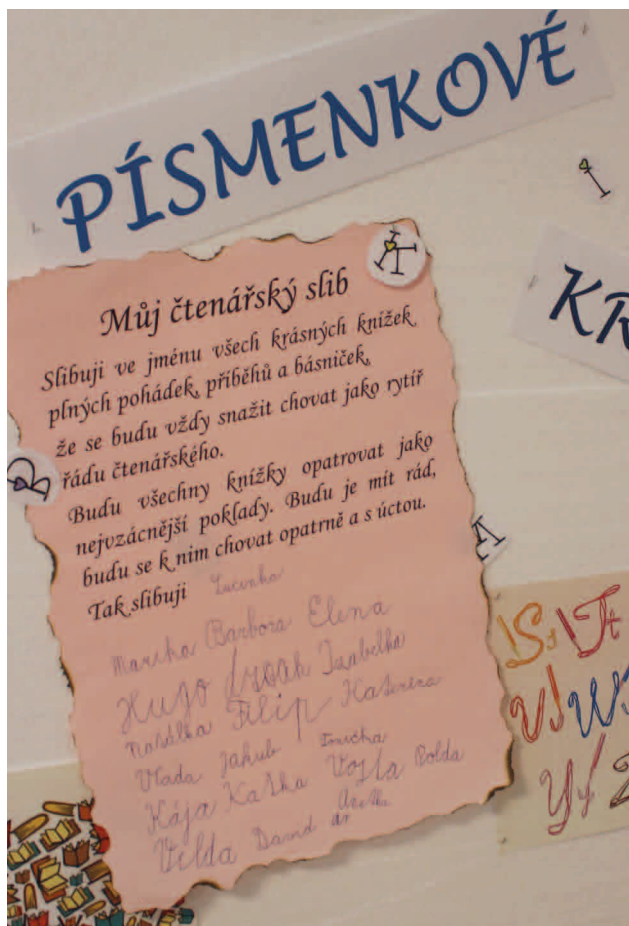 PÍSMENKOVÉ
I
KR
A
Můj čtenářský slib
Slibuji ve jménu všech krásných knížek
plných pohádek, příběhů a básniček,
že se budu vždy snažit chovat jako rytíř
řádu čtenářského.
Budu všechny knížky opatrovat jako
nejvzácnější poklady. Budu je mít rád,
budu se k nim chovat opatrně a s úctou.
Tak slibuji Lucinka
Barbora Elena
Hugo Izabelka
Filip Kateřina
Vlada Jakub
Kája Katka Vojta Polda
Vilda David
A